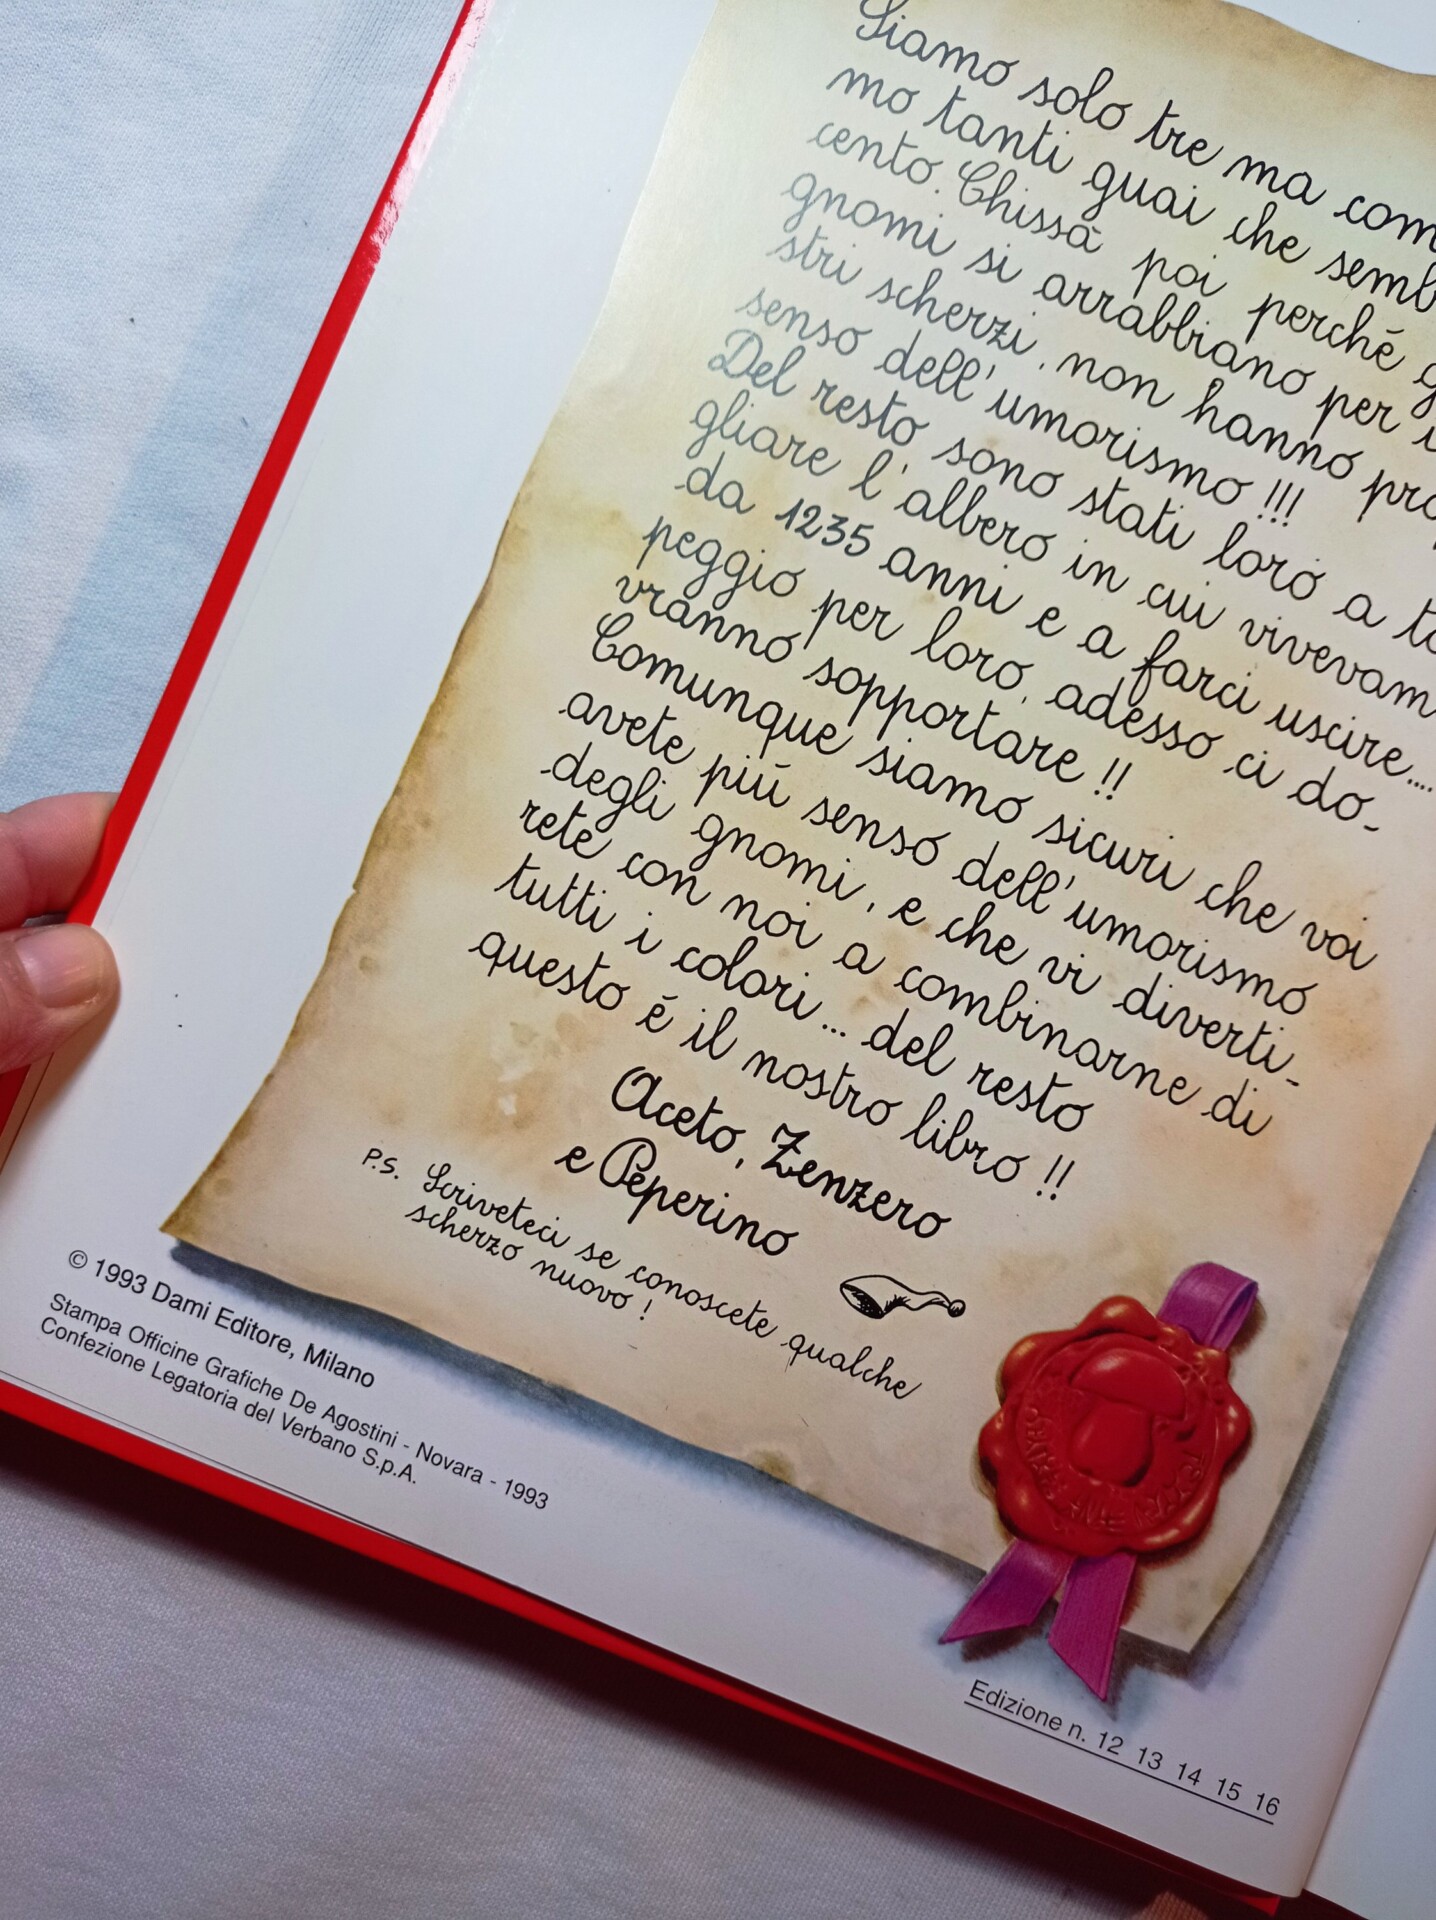 Siamo solo tre ma com
mo tanti guai che semb
cento. Chissà poi perché g
gnomi si arrabbiano per i
stri scherzi, non hanno pro
senso dell'umorismo !!!
Del resto sono stati loro a ta
gliare l'albero in cui vivevam
da 1235 anni e a farci uscire....
peggio per loro, adesso ci do-
vranno sopportare !!
Comunque siamo sicuri che voi
avete più senso dell'umorismo
degli gnomi, e che vi diverti-
rete con noi a combinarne di
tutti i colori... del resto
questo é il nostro libro !!
Aceto, Zenzero
e Peperino
P.S. Scriveteci se conoscete qualche
scherzo nuovo !
© 1993 Dami Editore, Milano
Stampa Officine Grafiche De Agostini - Novara - 1993
Confezione Legatoria del Verbano S.p.A.
Edizione n. 12 13 14 15 16